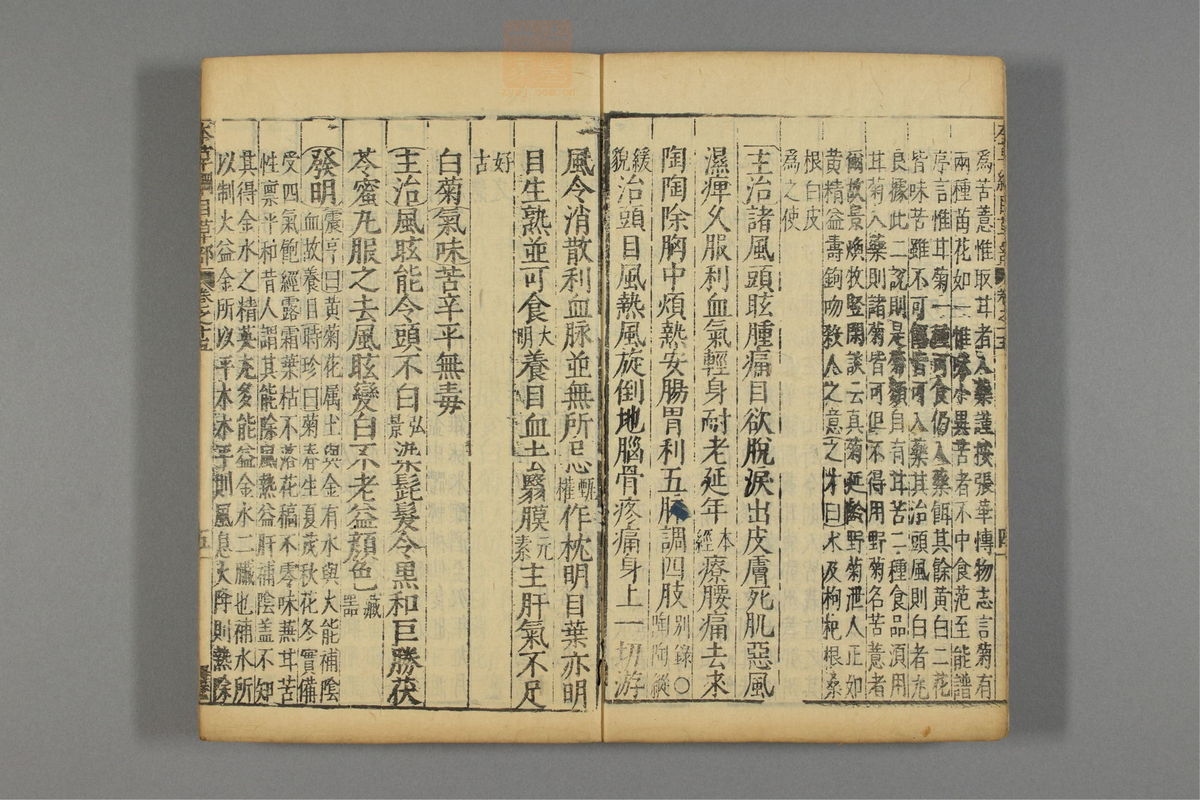 爲苦薏惟取甘者入藥謹按張華博物志言菊有
兩種苗花如一惟味小異苦者不中食范至能譜
序言惟甘菊一種可食仍入藥餌其餘黃白二花
皆味苦雖不可餌皆可入藥其治頭風則白者尤
良據此二說則是菊類自有甘苦二種食品須用
甘菊入藥則諸菊皆可但不得用野菊名苦薏者
爾故景煥牧竪閑談云真菊延齡野菊泄人正如
黃精益壽鉤吻殺人之意之才曰朮及枸杞根桑
根白皮
爲之使
主治諸風頭眩腫痛目欲脫淚出皮膚死肌惡風
濕痺久服利血氣輕身耐老延年本經療腰痛去來
陶陶除胸中煩熱安腸胃利五脉調四肢別錄○陶陶縱
緩貌治頭目風熱風旋倒地腦骨疼痛身上一切游
風令消散利血脉並無所忌甄權作枕明目葉亦明
目生熟並可食大明養目血去翳膜元素主肝氣不足
好古
白菊氣味苦辛平無毒
主治風眩能令頭不白弘景染髭髮令黑和巨勝茯
苓蜜丸服之去風眩變白不老益顏色藏器
發明震亨曰黃菊花属土與金有水與火能補陰
血故養目時珍曰菊春生夏茂秋花冬實備
受四氣飽經露霜葉枯不落花槁不零味蕪甘苦
性禀平和昔人謂其能除風熱益肝補陰盖不知
其得金水之精英尤多能益金水二臟也補水所
以制火益金所以平木木平則風息火降則熱除
本草綱目草部 卷之十五 五